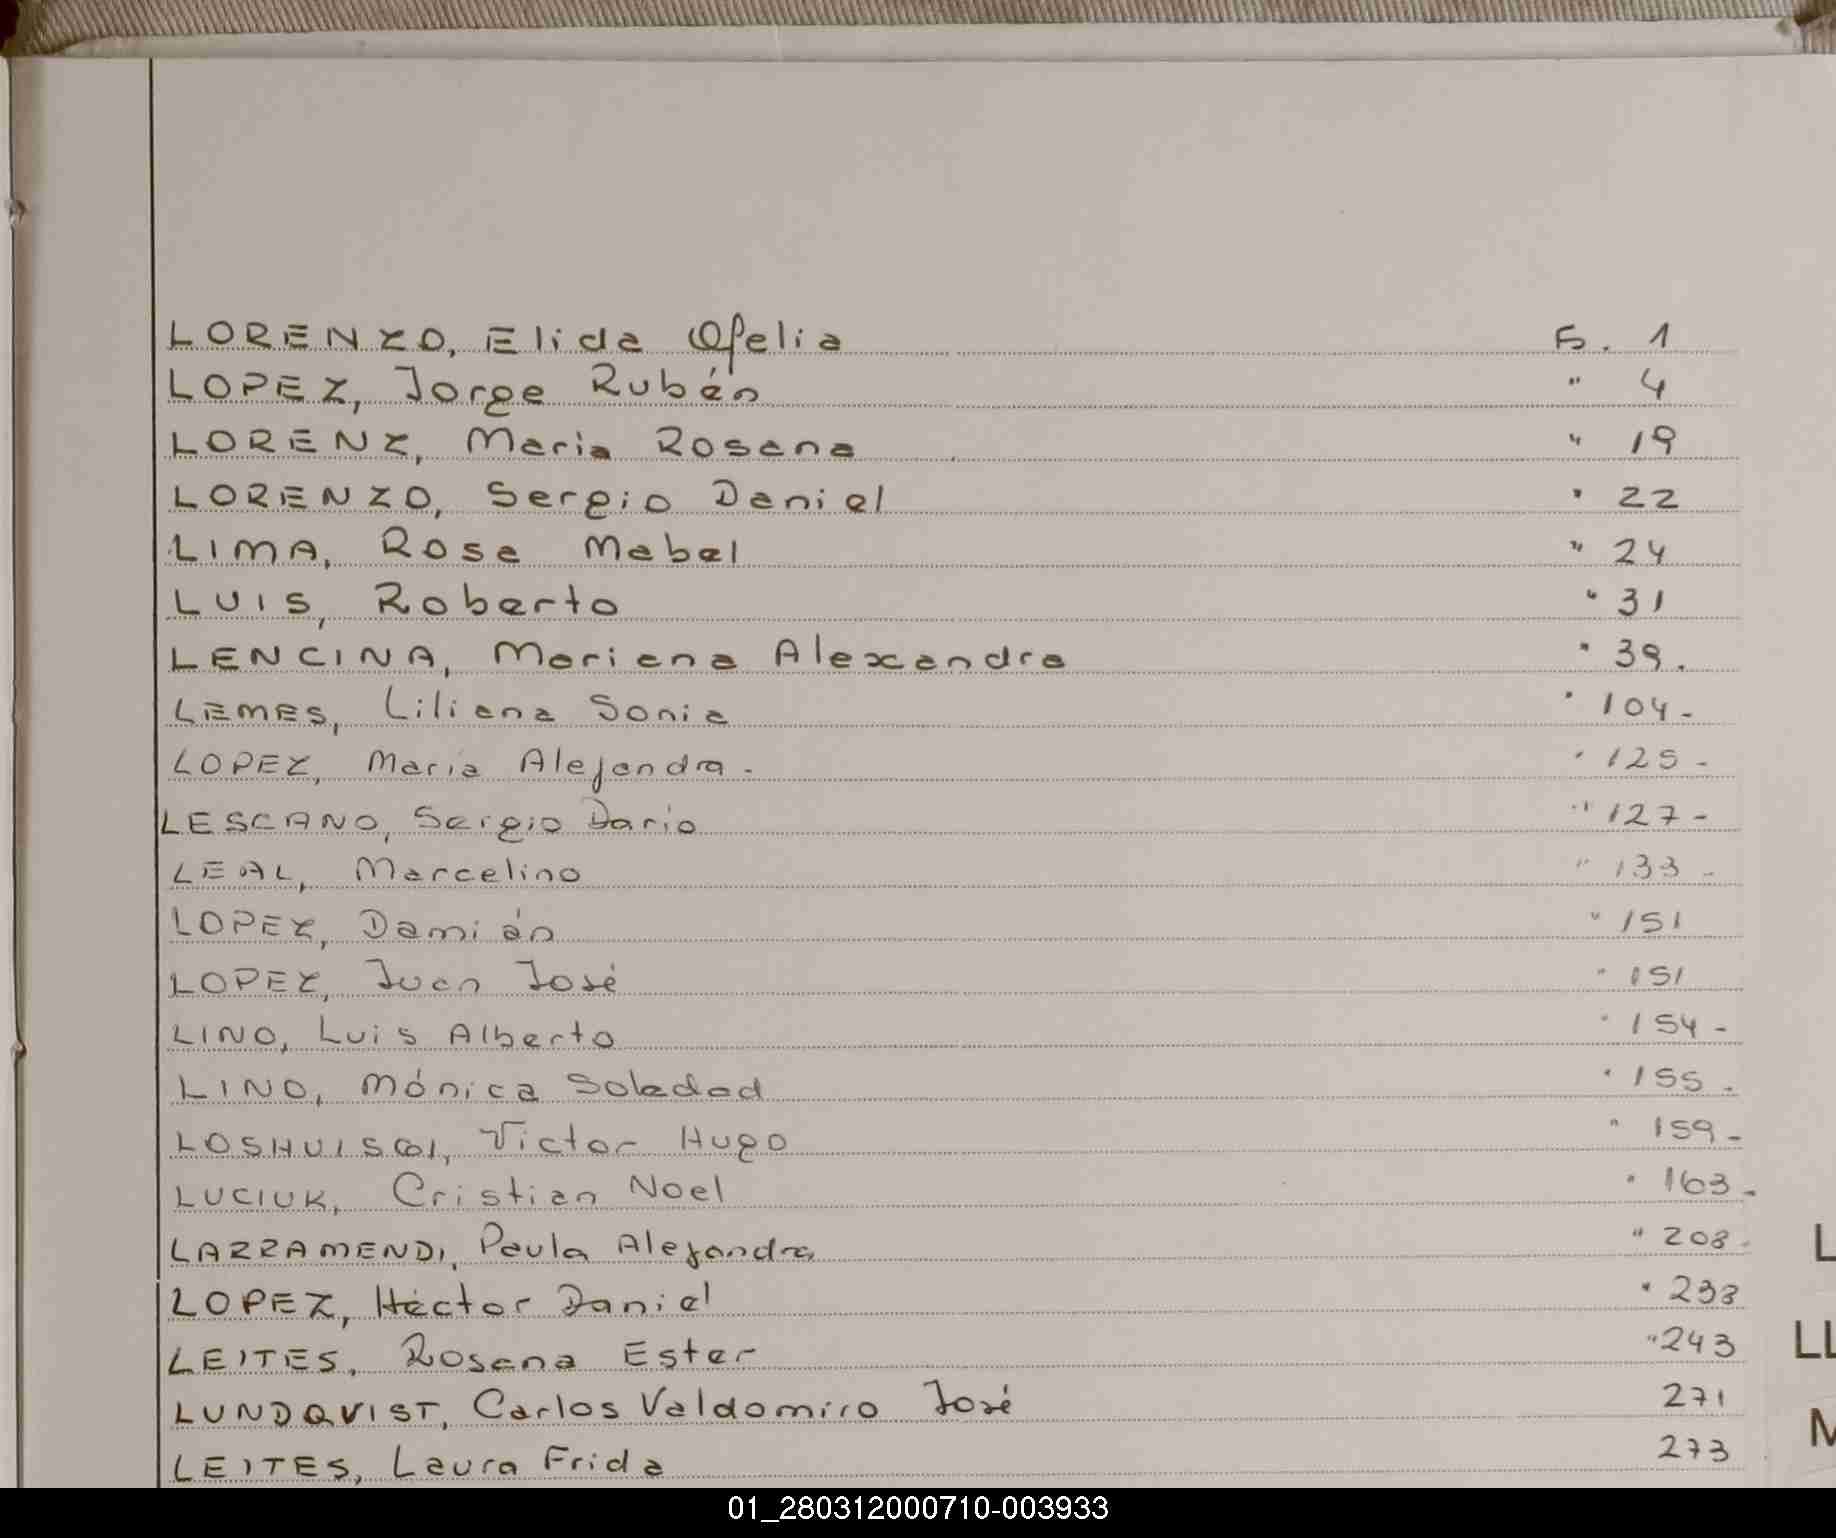 LORENZO, Elida Ofelia F. 1
LOPEZ, Jorge Rubén " 4
LORENZ, Maria Rosana " 19
LORENZO, Sergio Daniel " 22
LIMA, Rosa Mabel " 24
LUIS, Roberto " 31
LENCINA, Mariana Alexandra " 39.
LEMES, Liliana Sonia " 104-
LOPEZ, María Alejandra. " 125-
LESCANO, Sergio Dario " 127-
LEAL, Marcelino " 133-
LOPEZ, Damián " 151
LOPEZ, Juan José " 151
LINO, Luis Alberto " 154-
LINO, Mónica Soledad " 155-
Victor Hugo " 159-
LUCIUK, Cristian Noel " 163-
LARRAMENDI, Paula Alejandra " 208-
LOPEZ, Héctor Daniel " 233
LEITES, Rosana Ester " 243
LUNDQVIST, Carlos Valdomiro José 271
LEITES, Laura Frida 273
L
LL
M
01_280312000710-003933